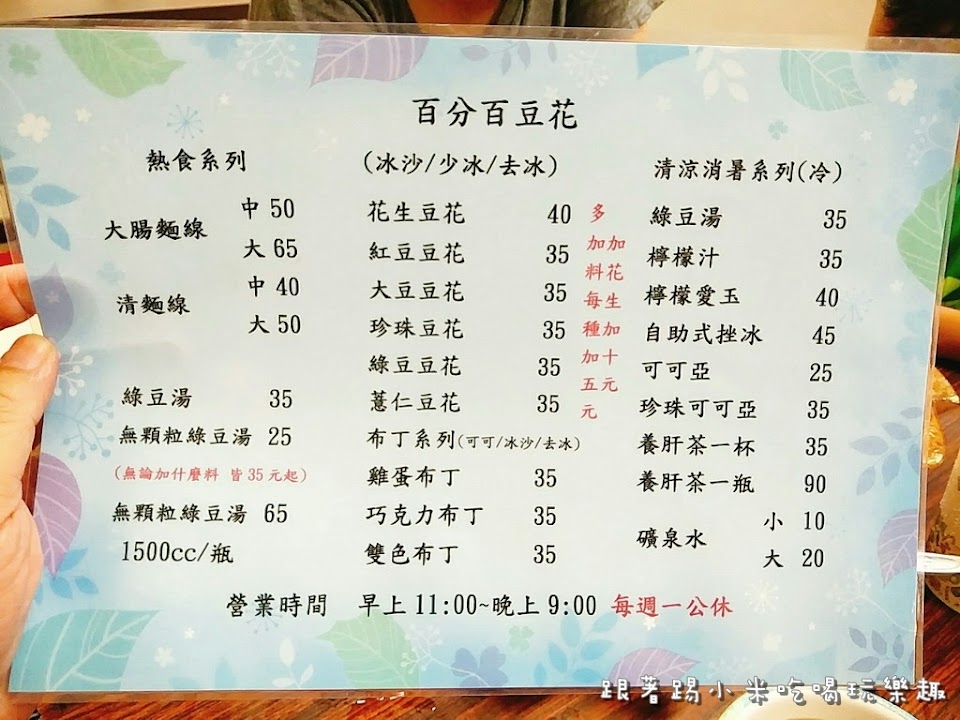 百分百豆花
熱食系列
大腸麵線 中 50
大 65
清麵線 中 40
大 50
綠豆湯 35
無顆粒綠豆湯 25
(無論加什麼料 皆35元起)
無顆粒綠豆湯 65
1500cc/瓶
(冰沙/少冰/去冰)
花生豆花 40
紅豆豆花 35
大豆豆花 35
珍珠豆花 35
綠豆豆花 35
薏仁豆花 35
布丁系列(可可/冰沙/去冰)
雞蛋布丁 35
巧克力布丁 35
雙色布丁 35
多加料每種加五元
加花生加十元
清涼消暑系列(冷)
綠豆湯 35
檸檬汁 35
檸檬愛玉 40
自助式挫冰 45
可可亞 25
珍珠可可亞 35
養肝茶一杯 35
養肝茶一瓶 90
礦泉水 小 10
大 20
營業時間 早上11:00~晚上9:00 每週一公休
跟著踢小米吃喝玩樂趣